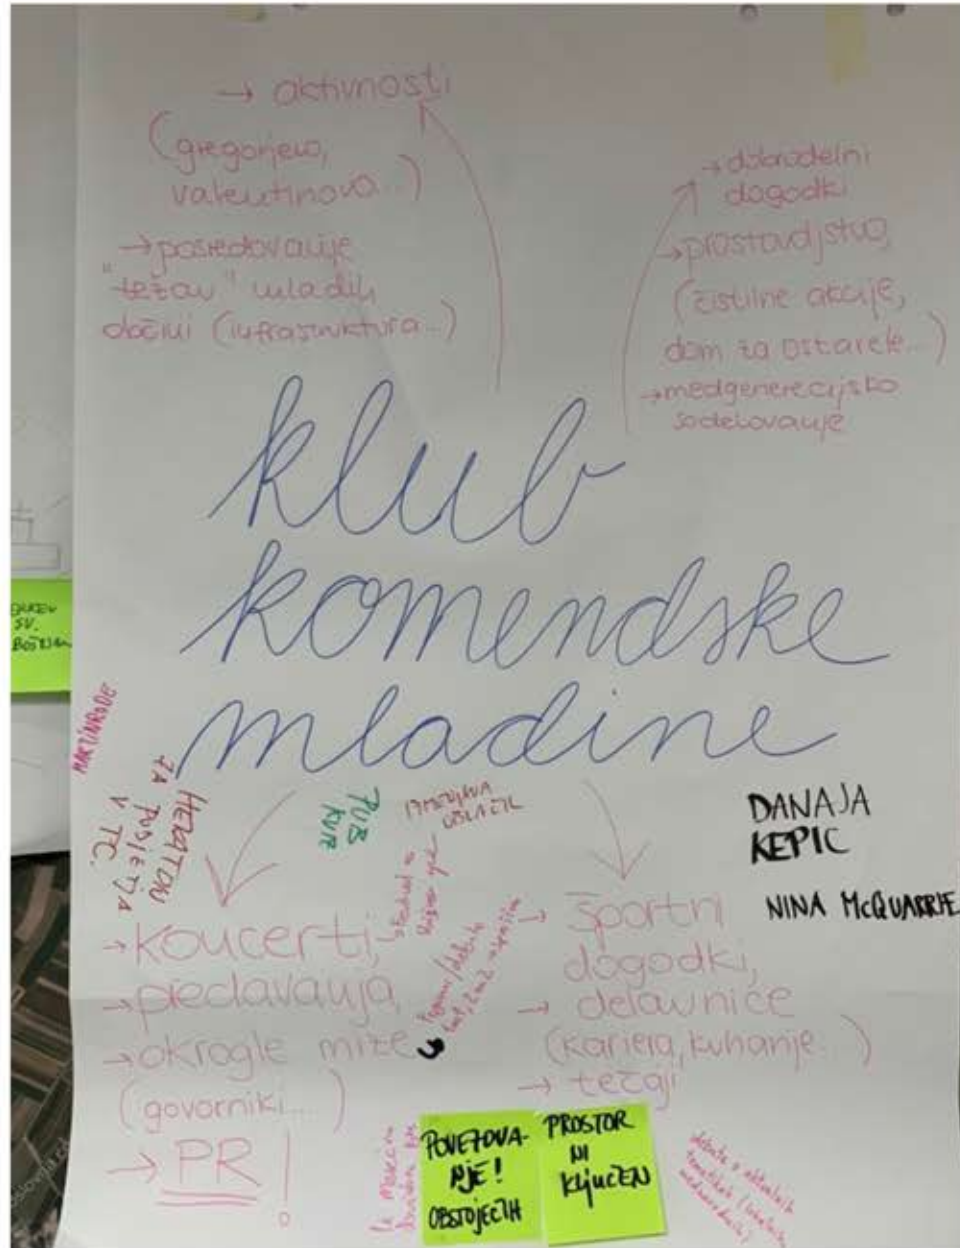 → aktivnosti
(gregorjevo,
valentinovo...)
→ posredovanje
"težav" mladih
občini (infrastruktura...)
→ dobrodelni
dogodki
→ prostovoljstvo,
(čistilne akcije,
dom za ostarele...)
→ medgeneracijsko
sodelovanje
klub
komendske
mladine
SV.
BOŠTJAN
MARTINRODE
HEKATON
ZA
PODJETJA
V TC.
PUB
KVIZ
IZMENJAVA
OBLAČIL
DANAJA
KEPIC
NINA McQUARRIE
→ koncerti,
→ predavanja,
→ okrogle mize
(govorniki...)
→ PR!
→ športni
dogodki,
→ delavnice
(kariera, kuhanje...)
→ tečaji
POVEZOVA-
NJE!
OBSTOJEČIH
PROSTOR
NI
KLJUČEN
debate o aktualnih